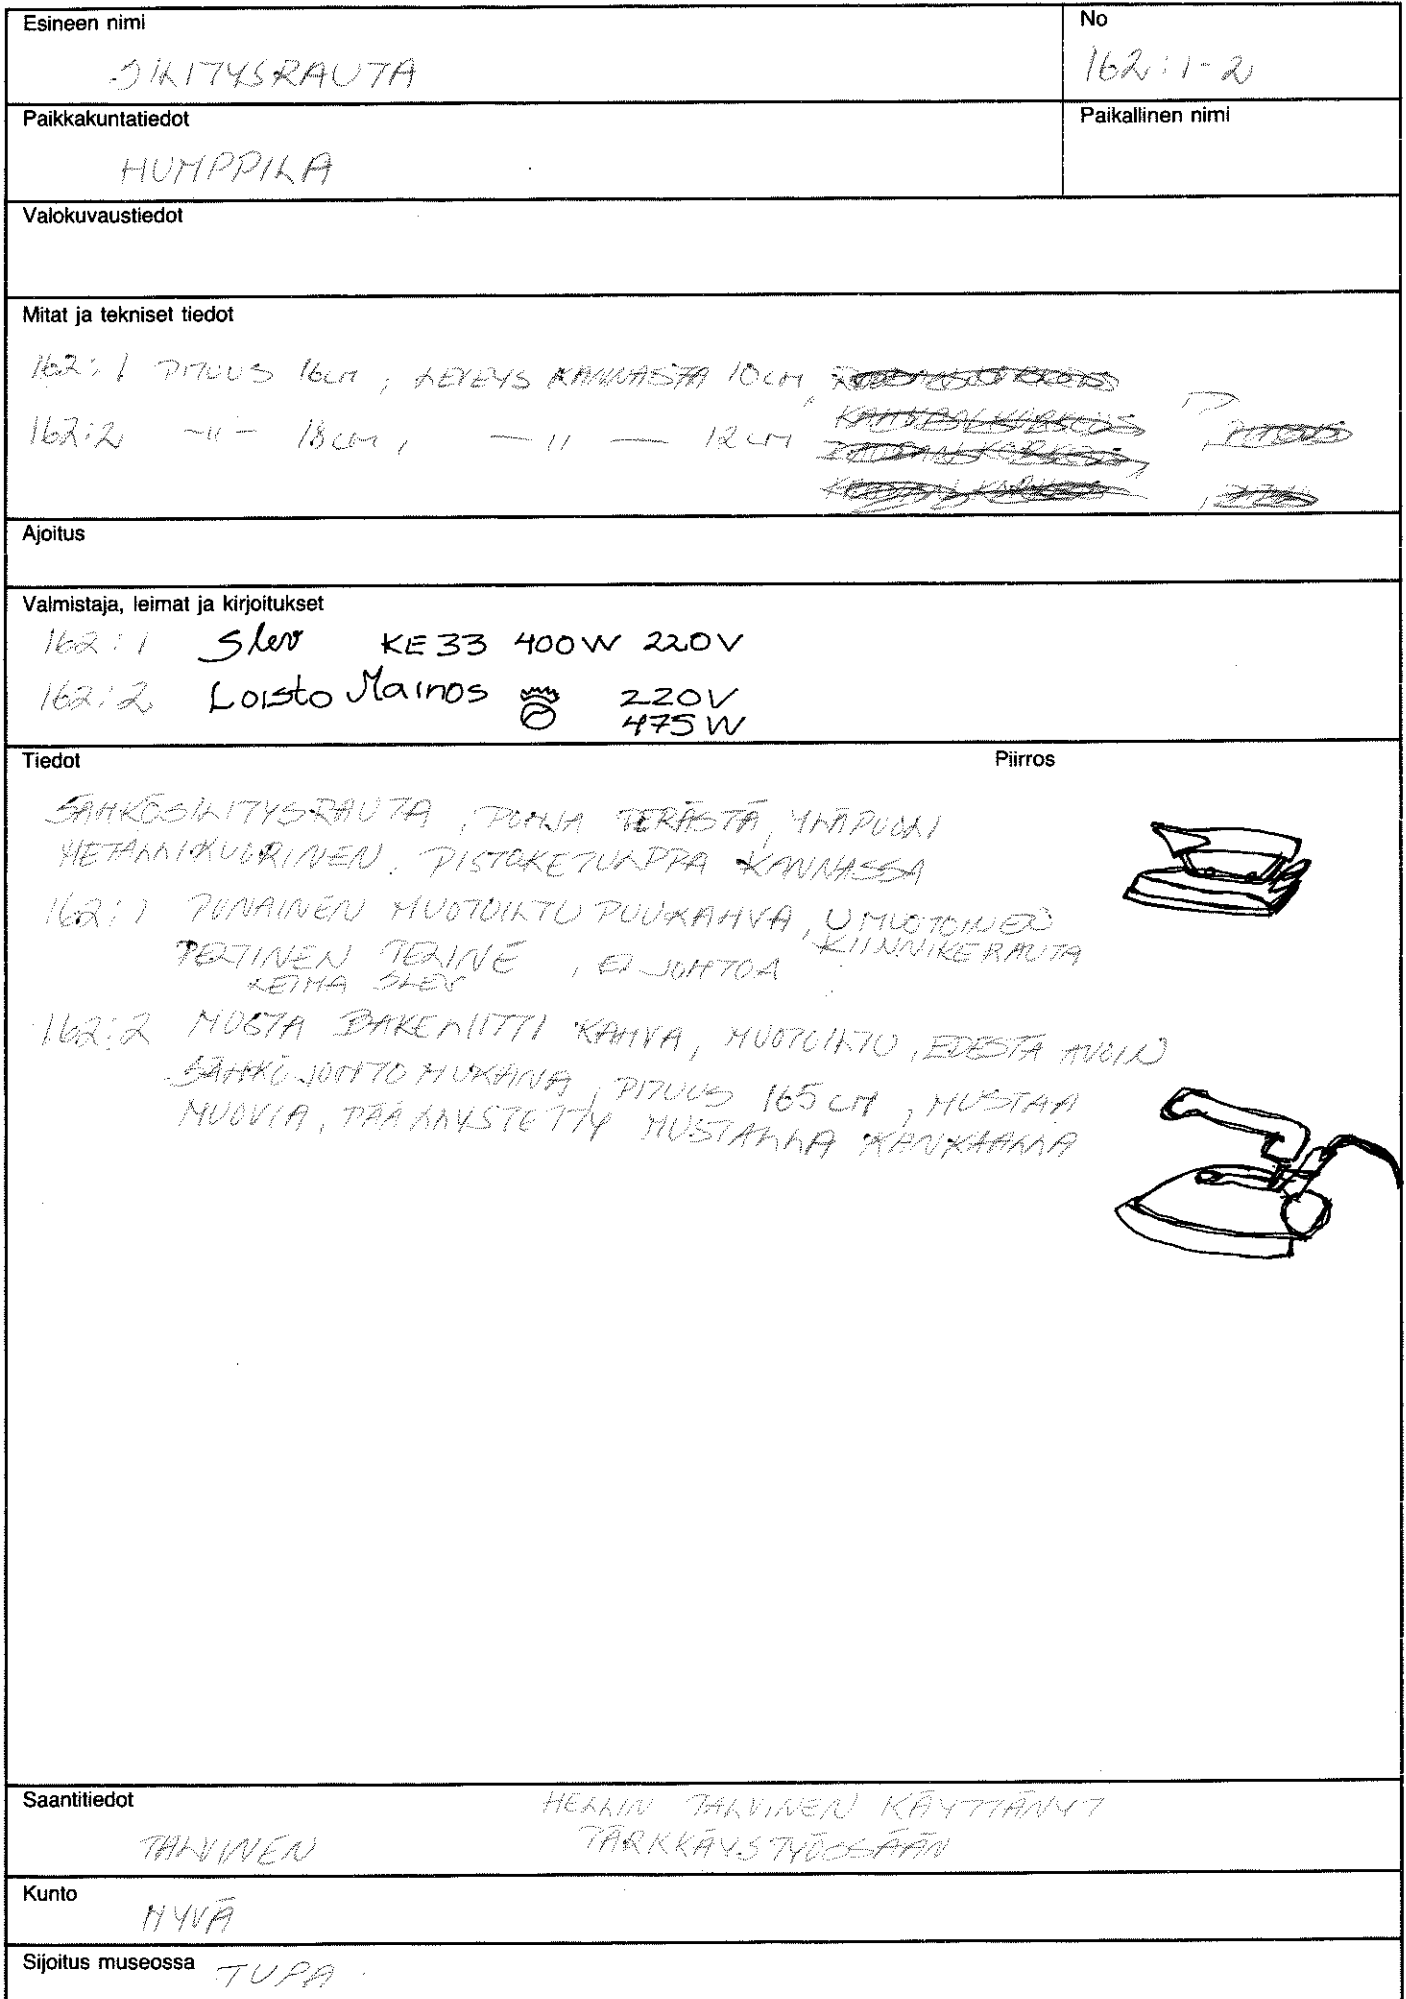 Esineen nimi
SILITYSRAUTA
No
162:1-2
Paikkakuntatiedot
HUMPPILA
Paikallinen nimi
Valokuvaustiedot
Mitat ja tekniset tiedot
162:1 PITUUS 16CM, LEVEYS KANNASTA 10CM,
162:2 -"- 18CM, -"- 12CM
Ajoitus
Valmistaja, leimat ja kirjoitukset
162:1 Slev KE 33 400W 220V
162:2 Loisto Mainos 220V
475W
Tiedot
Piirros
SÄHKÖSILITYSRAUTA, POHJA TERÄSTÄ, YLÄPUOLI
METALLIKUORINEN. PISTOKETULPPA KANNASSA
162:1 PUNAINEN MUOTOILTU PUUKAHVA, U MUOTOINEN
KIINNIKERAUTA
PELTINEN TELINE, EI JOHTOA
LEIMA SLEV
162:2 MUSTA BAKELIITTI KAHVA, MUOTOILTU, EDESTÄ AVOIN
SÄHKÖJOHTO MUKANA, PITUUS 165 CM, MUSTAA
MUOVIA, PÄÄLLYSTETTY MUSTALLA KANKAALLA
Saantitiedot
TALVINEN
HELLIN TALVINEN KÄYTTÄNYT
TÄRKKÄYSTYÖSSÄÄN
Kunto
HYVÄ
Sijoitus museossa TUPA